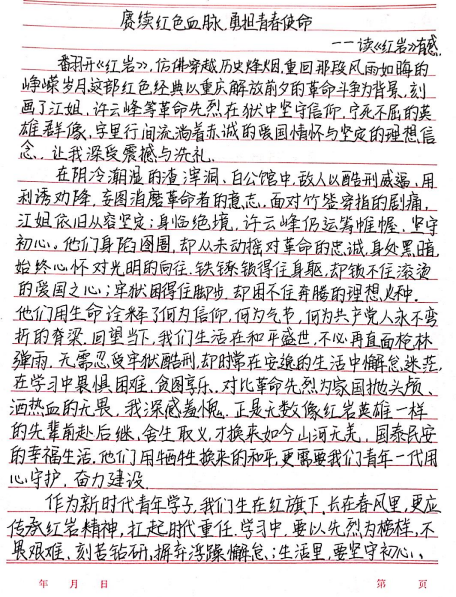 赓续红色血脉 勇担青春使命
——读《红岩》有感
翻开《红岩》，仿佛穿越历史烽烟，重回那段风雨如晦的
峥嵘岁月。这部红色经典以重庆解放前夕的革命斗争为背景，刻
画了江姐、许云峰等革命先烈在狱中坚守信仰、宁死不屈的英
雄群像，字里行间流淌着赤诚的爱国情怀与坚定的理想信
念，让我深受震撼与洗礼。
在阴冷潮湿的渣滓洞、白公馆中，敌人以酷刑威逼、用
利诱劝降，妄图消磨革命者的意志。面对竹签穿指的剧痛，
江姐依旧从容坚定；身临绝境，许云峰仍运筹帷幄，坚守
初心。他们身陷囹圄，却从未动摇对革命的忠诚，身处黑暗，
始终心怀对光明的向往。铁镣锁得住身躯，却锁不住滚烫
的爱国之心；牢狱困得住脚步，却困不住奔腾的理想火种。
他们用生命诠释了何为信仰，何为气节，何为共产党人永不弯
折的脊梁。回望当下，我们生活在和平盛世，不必再直面枪林
弹雨，无需忍受牢狱酷刑，却时常在安逸的生活中懈怠、迷茫，
在学习中畏惧困难、贪图享乐。对比革命先烈为家国抛头颅、
洒热血的无畏，我深感羞愧。正是无数像红岩英雄一样
的先辈前赴后继、舍生取义，才换来如今山河无恙、国泰民安
的幸福生活。他们用牺牲换来的和平，更需要我们青年一代用
心守护，奋力建设。
作为新时代青年学子，我们生在红旗下，长在春风里，更应
传承红岩精神，扛起时代重任。学习中，要以先烈为榜样，不
畏艰难、刻苦钻研，摒弃浮躁懈怠；生活里，要坚守初心、
年 月 日 第 页